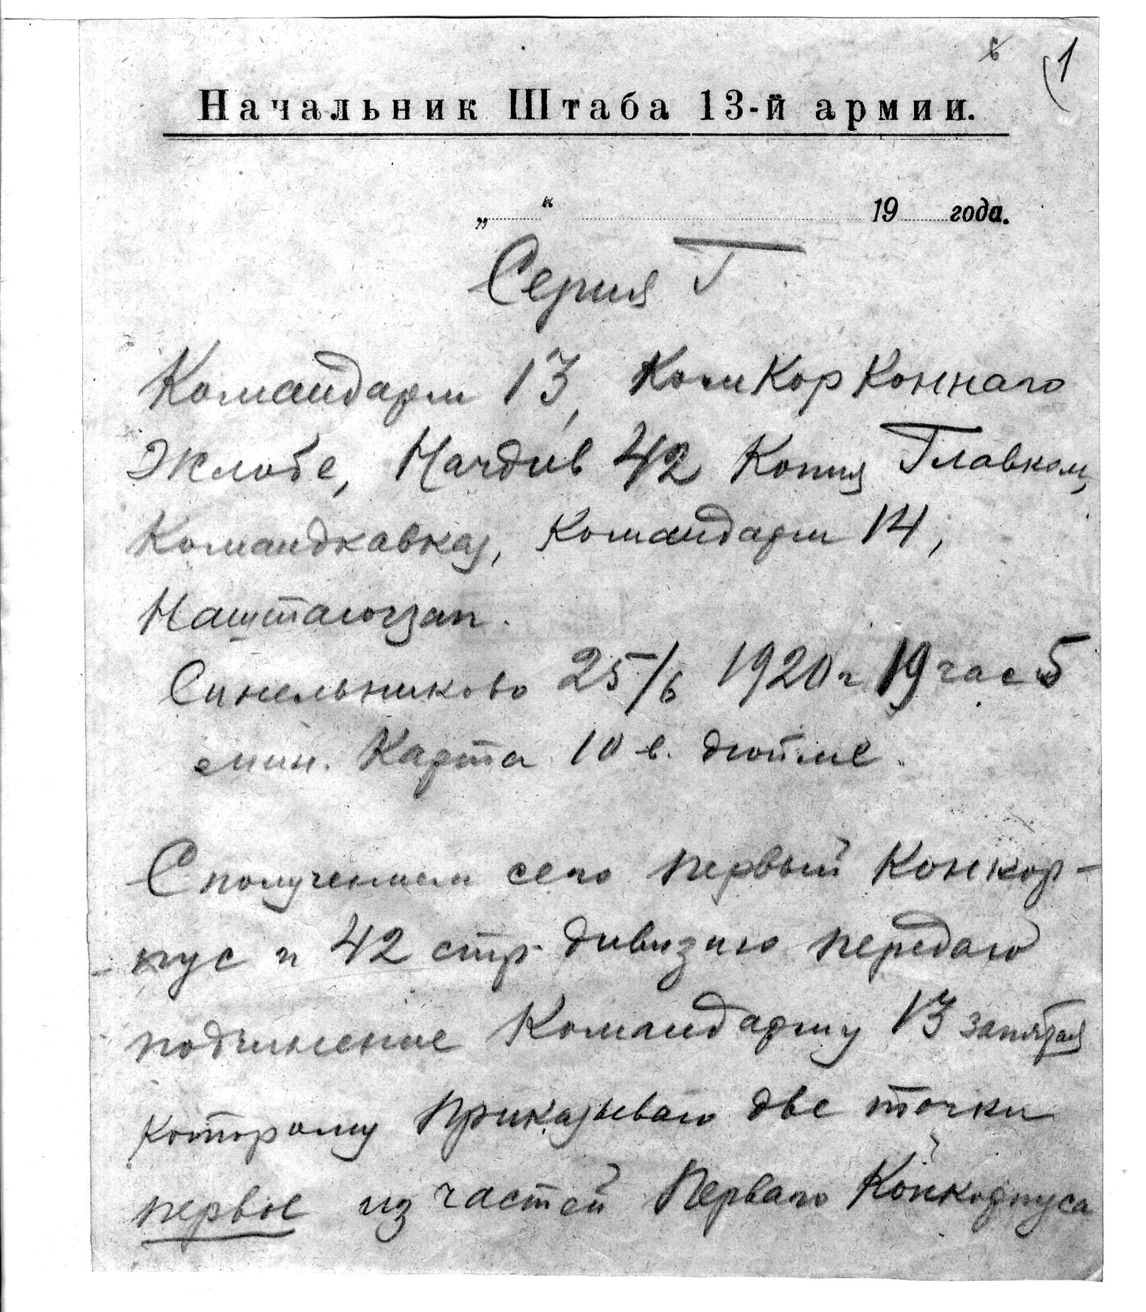 1
Начальник Штаба 13-й армии.
„ “ 19 года.
Серия Г
Командарм 13, КомКор Коннаго
Жлобе, Начдив 42 Копия Главком,
Командкавказ, Командарм 14,
Наштаюгзап.
Синельниково 25/6 1920 г 19 час 5
мин. Карта 10 в. дюйме.
С получением сего первый Конкор-
пус и 42 стр. дивизию передаю
подчинение Командарму 13 запятая
которому приказываю две точки
первое из частей Первого Конкорпуса